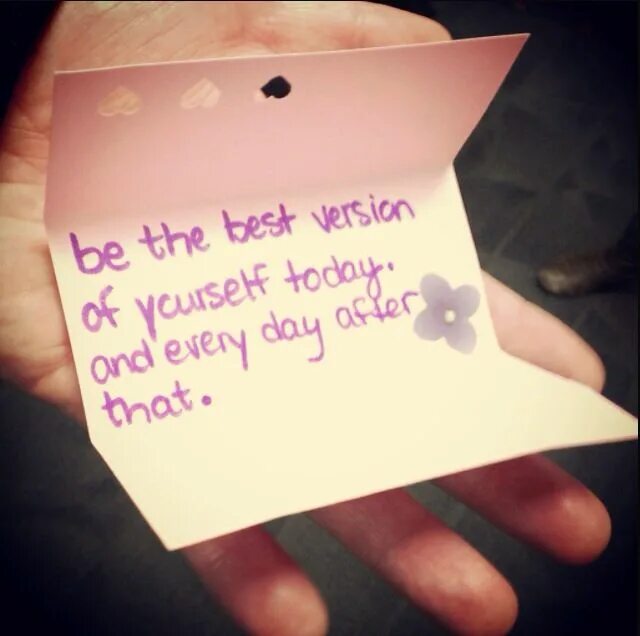 be the best version
of yourself today.
and every day after
that.